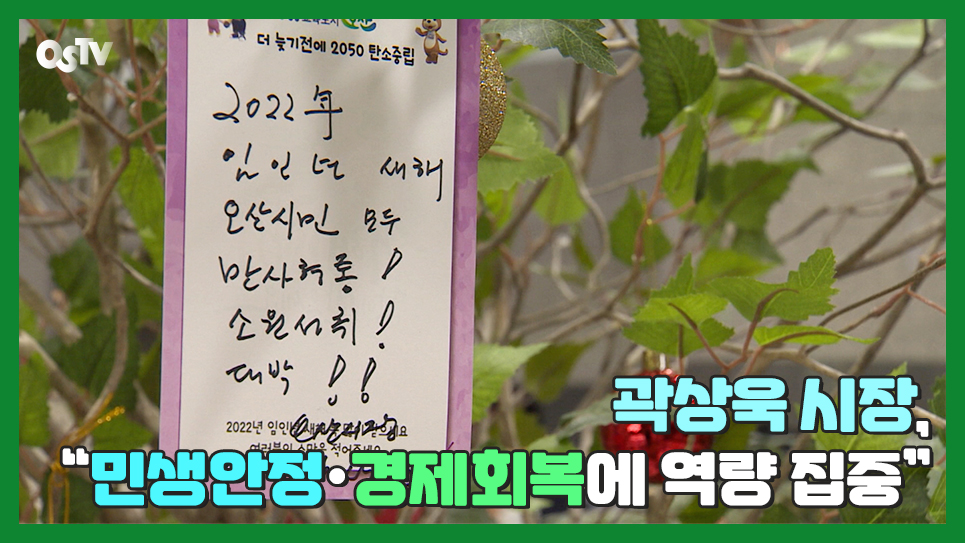 OSTV
더 늦기전에 2050 탄소중립
2022年
임인년 새해
오산시민 모두
만사형통!
소원성취!
대박!!
2022년 임인년 새해
곽상욱 시장,
“민생안정·경제회복에 역량 집중”